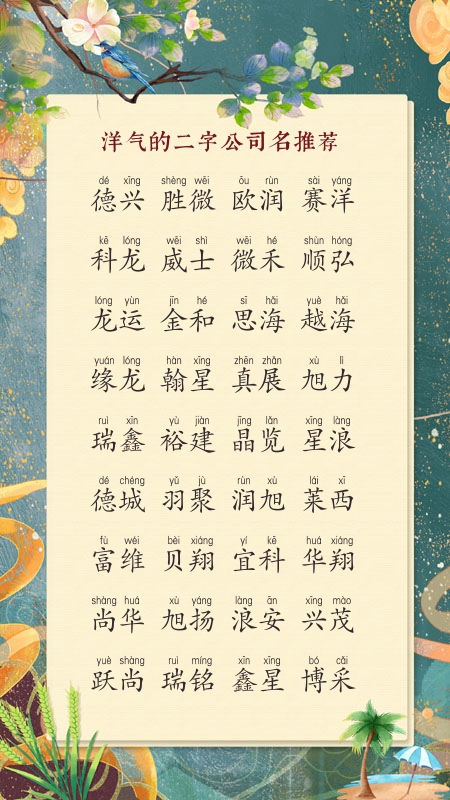 洋气的二字公司名推荐
dé xīng shèng wēi ōu rùn sài yáng
德兴 胜微 欧润 赛洋
kē lóng wēi shì wēi hé shùn hóng
科龙 威士 微禾 顺弘
lóng yùn jīn hé sī hǎi yuè hǎi
龙运 金和 思海 越海
yuán lóng hàn xīng zhēn zhǎn xù lì
缘龙 翰星 真展 旭力
ruì xīn yù jiàn jīng lǎn xīng làng
瑞鑫 裕建 晶览 星浪
dé chéng yǔ jù rùn xù lái xī
德城 羽聚 润旭 莱西
fù wéi bèi xiáng yí kē huá xiáng
富维 贝翔 宜科 华翔
shàng huá xù yáng làng ān xīng mào
尚华 旭扬 浪安 兴茂
yuè shàng ruì míng xīn xīng bó cǎi
跃尚 瑞铭 鑫星 博采